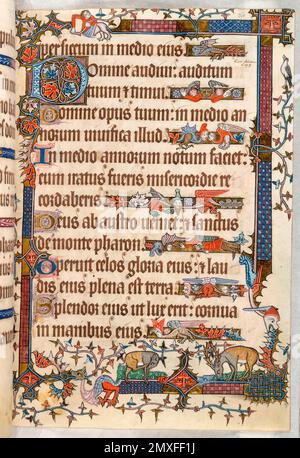 super sicum in medio eius
Domine audiui: auditum
tuum & timui
Domine opus tuum: in medio an
norum uiuifica illud
In medio annorum notum facies:
cum iratus fueris misericordie re
cordaberis
Deus ab austro ueniet: & sanctus
de monte pharan
Operuit celos gloria eius: & lau
dis eius plena est terra
Splendor eius ut lux erit: cornua
in manibus eius
alamy
Image ID: 2MXFF1J
www.alamy.com